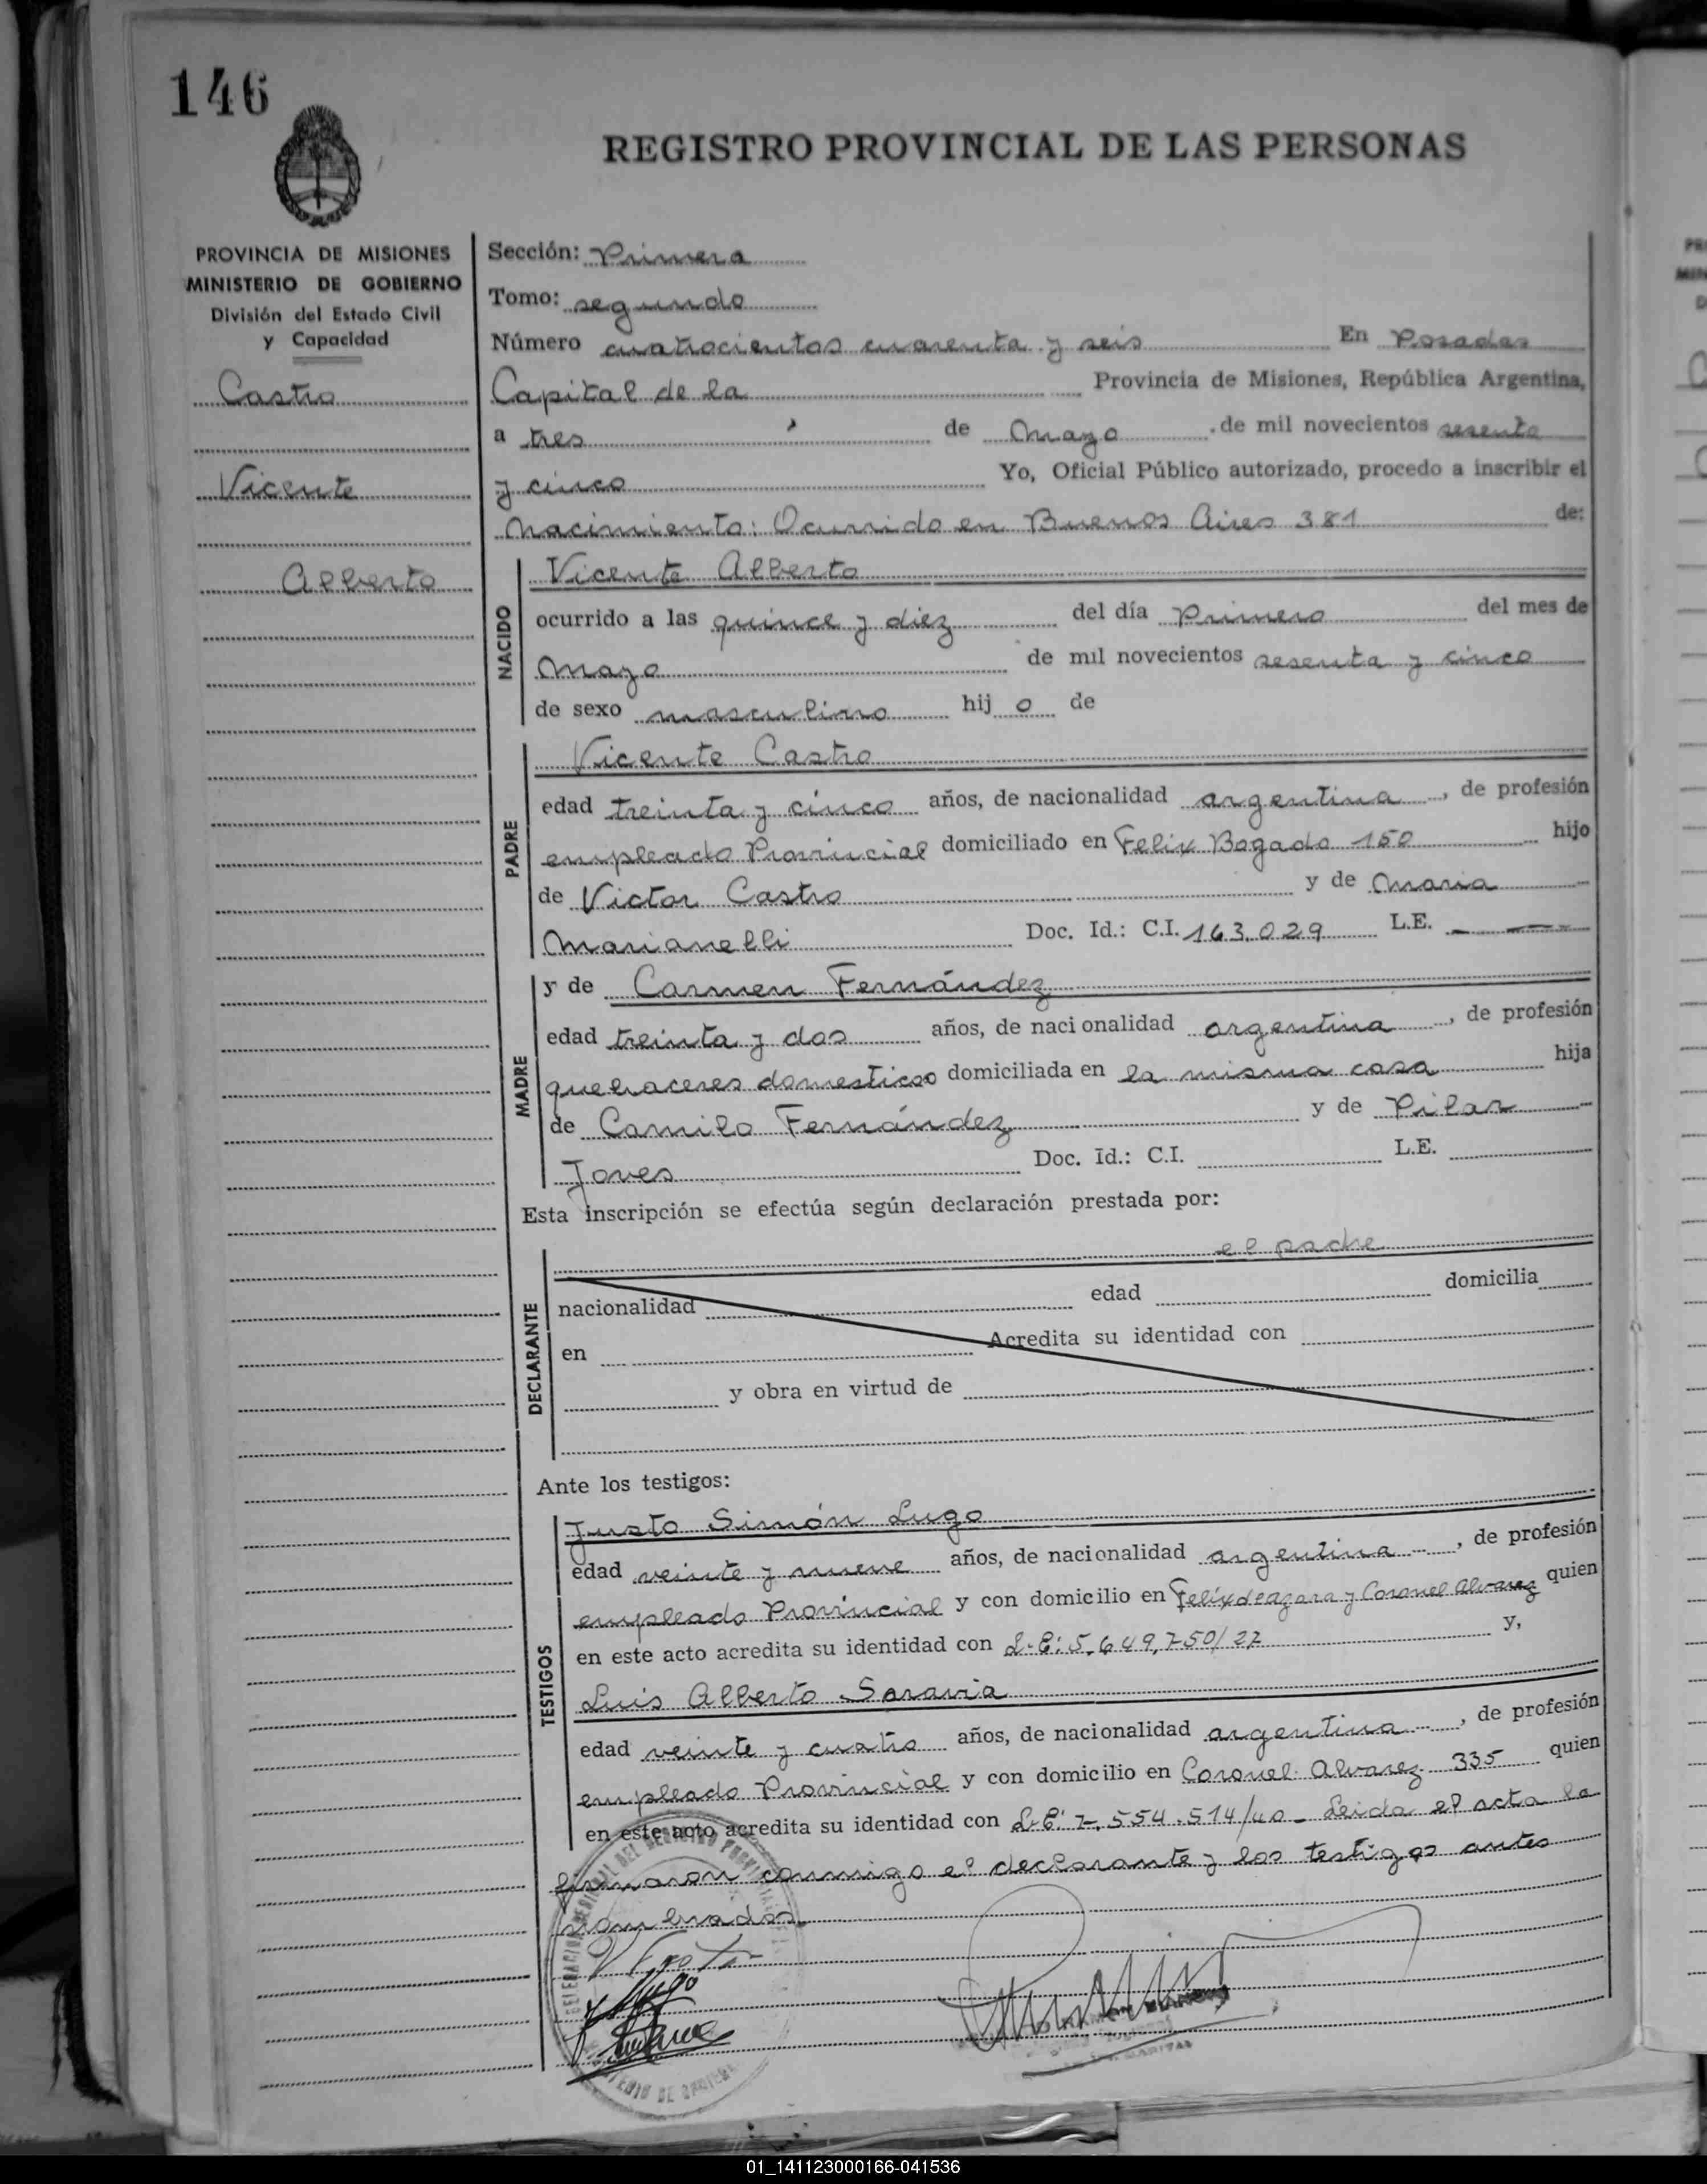 146
REGISTRO PROVINCIAL DE LAS PERSONAS
PROVINCIA DE MISIONES
MINISTERIO DE GOBIERNO
División del Estado Civil
y Capacidad
Castro
Vicente
Alberto
Sección: Primera
Tomo: segundo
Número cuatrocientos cuarenta y seis En Posadas
Capital de la Provincia de Misiones, República Argentina,
a tres de Mayo de mil novecientos sesenta
y cinco Yo, Oficial Público autorizado, procedo a inscribir el
Nacimiento: Ocurrido en Buenos Aires 381 de:
NACIDO
Vicente Alberto
ocurrido a las quince y diez del día Primero del mes de
Mayo de mil novecientos sesenta y cinco
de sexo masculino hij o de
PADRE
Vicente Castro
edad treinta y cinco años, de nacionalidad argentina, de profesión
empleado Provincial domiciliado en Felix Bogado 150 hijo
de Victor Castro y de Maria
Marianelli Doc. Id.: C.I. 163.029 L.E. — —
MADRE
y de Carmen Fernández
edad treinta y dos años, de nacionalidad argentina, de profesión
quehaceres domesticos domiciliada en la misma casa hija
de Camilo Fernández y de Pilar
Joves Doc. Id.: C.I. L.E.
Esta inscripción se efectúa según declaración prestada por:
el padre
DECLARANTE
nacionalidad edad domicilia
en Acredita su identidad con
y obra en virtud de
Ante los testigos:
TESTIGOS
Justo Simón Lugo
edad veinte y nueve años, de nacionalidad argentina, de profesión
empleado Provincial y con domicilio en Felix de Azara y Coronel Alvarez quien
en este acto acredita su identidad con L.E: 5.649.750/27 y,
Luis Alberto Saravia
edad veinte y cuatro años, de nacionalidad argentina, de profesión
empleado Provincial y con domicilio en Coronel Alvarez 335 quien
en este acto acredita su identidad con L.E: 7.554.514/40_ Leida el acta la
firmaron conmigo el declarante y los testigos antes
nombrados.
01_141123000166-041536